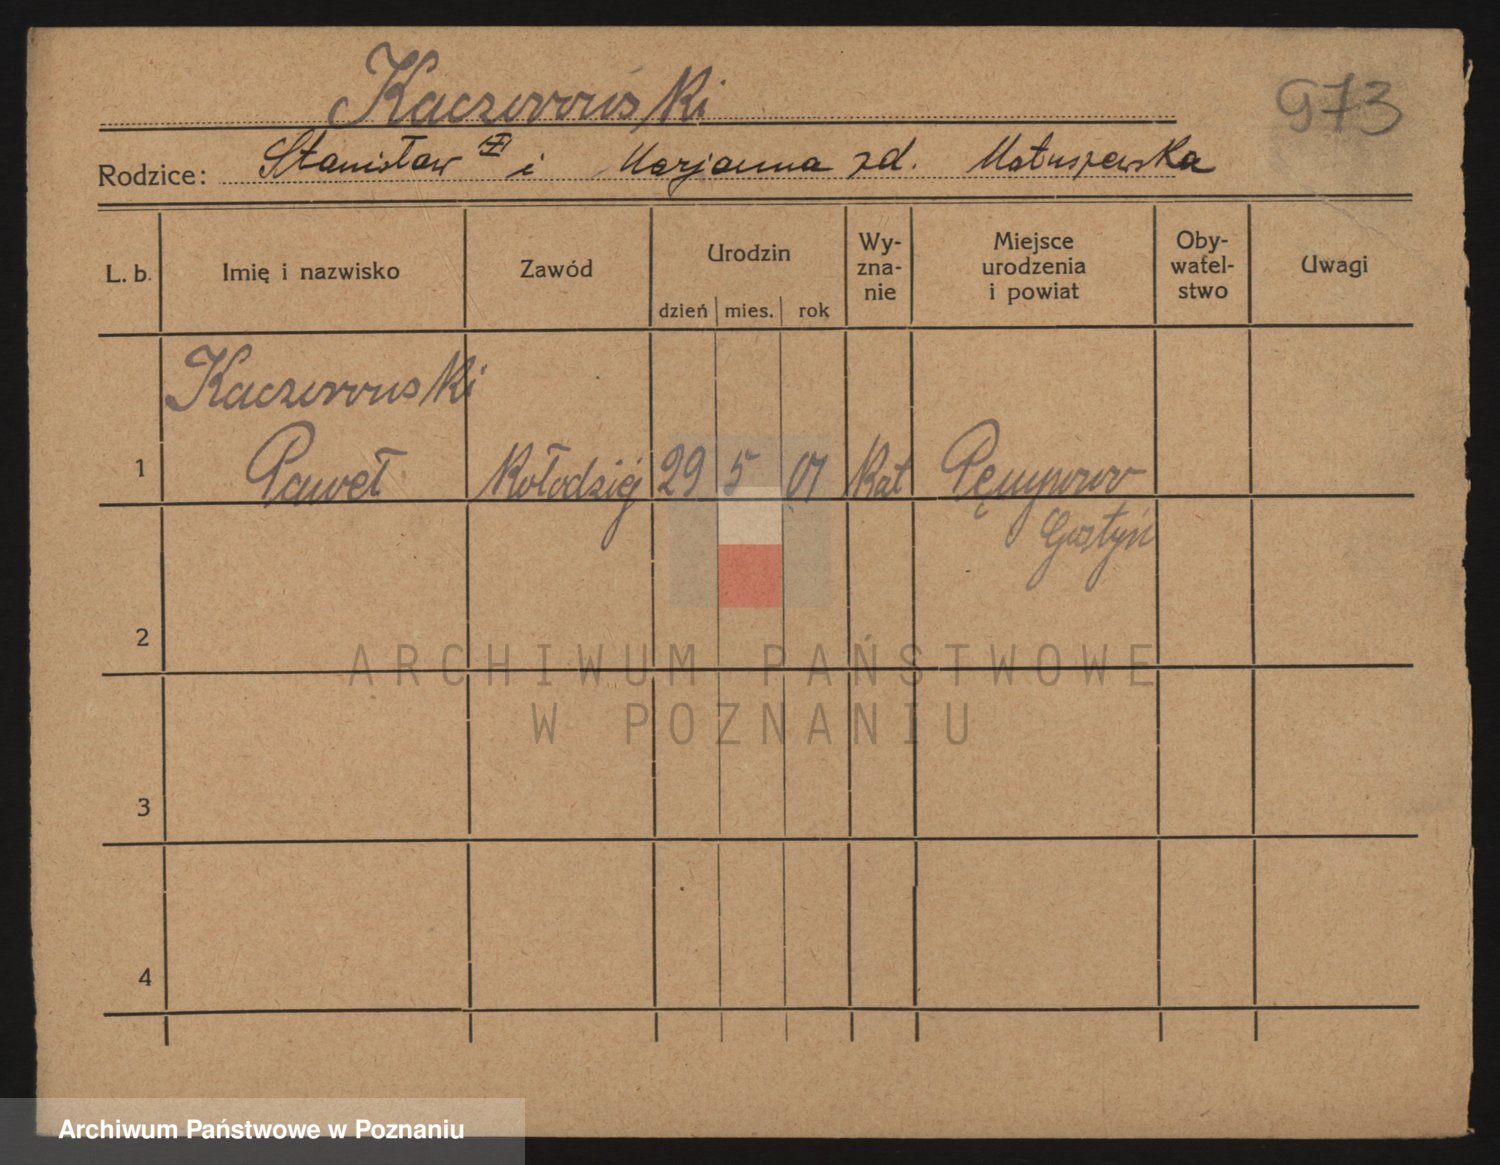 Kaczorowski
973
Rodzice: Stanisław i Marjanna zd. Matuszewska
L. b. Imię i nazwisko Zawód Urodzin dzień mies. rok Wy-zna-nie Miejsce urodzenia i powiat Oby-watel-stwo Uwagi
Kaczorowski
1 Paweł Kołodziej 29 5 01 Kat
Gostyń
2
3
4
ARCHIWUM PAŃSTWOWE
W POZNANIU
Archiwum Państwowe w Poznaniu